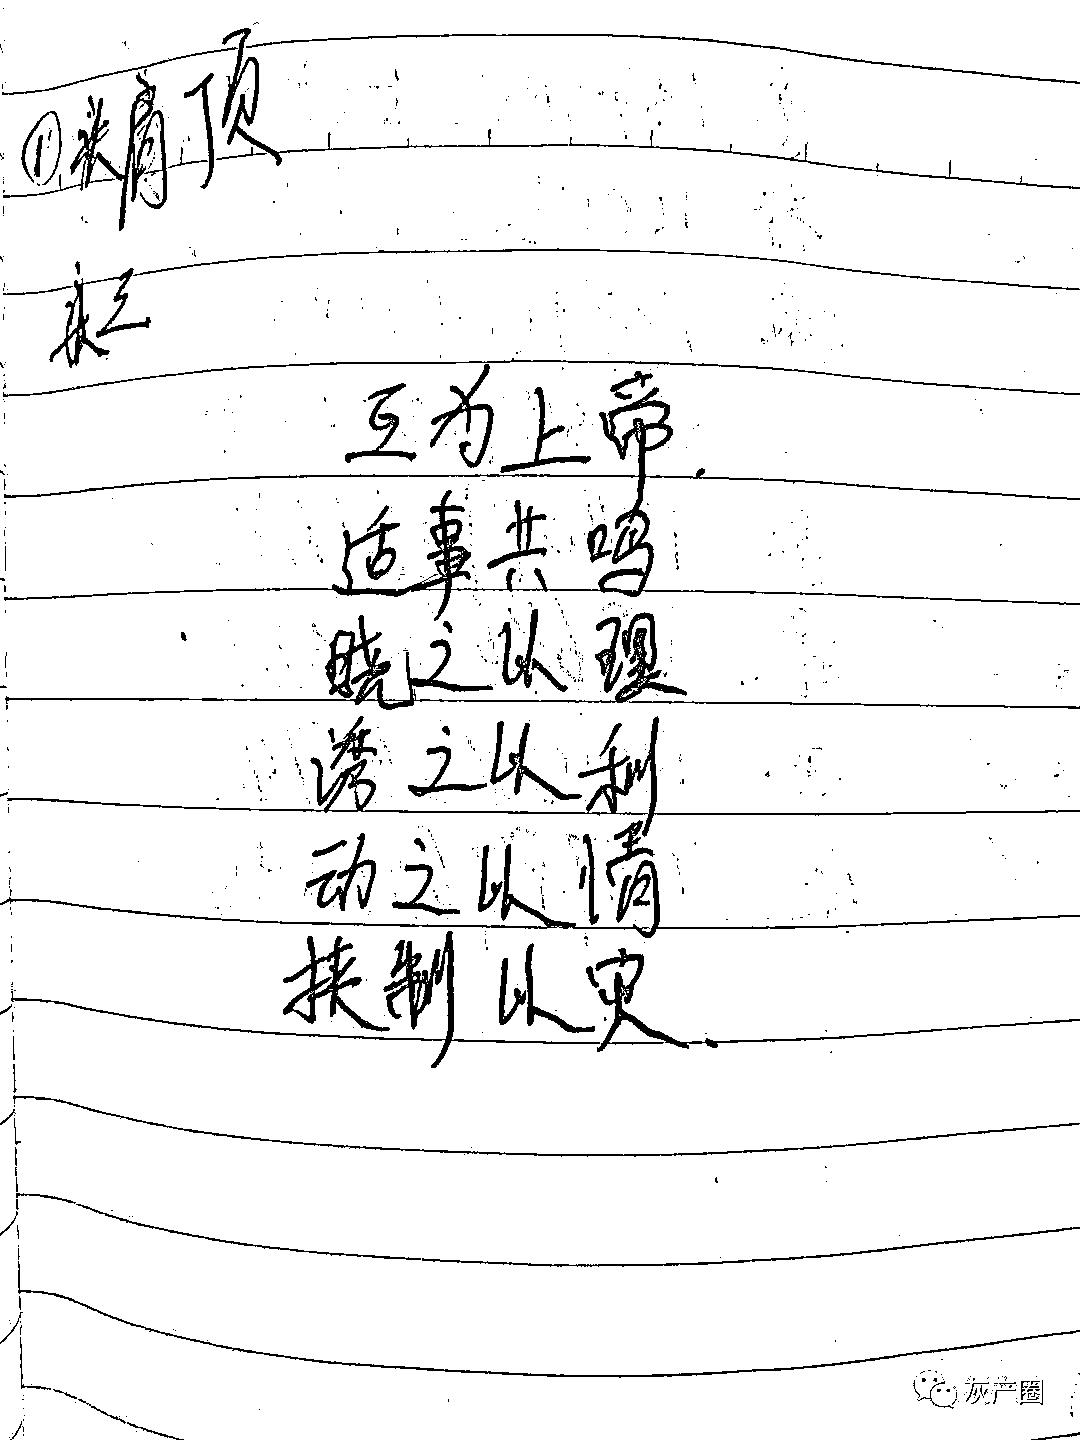 ①头肩顶
互为上帝.
适事共鸣
晓之以理
诱之以利
动之以情
挟制以灾.
灰产圈